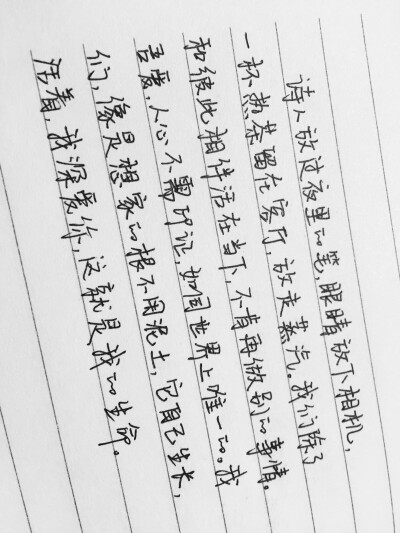 诗人放过夜里的笔,眼睛放下相机,
一杯热茶留在客厅,放走蒸汽。我们除了
和彼此相伴活在当下,不肯再做别的事情。
吾爱,人心不需印记,如同世界上唯一的。我
们,像是想家的根不用泥土,它自己生长,
活着,我深爱你,这就是我的生命。